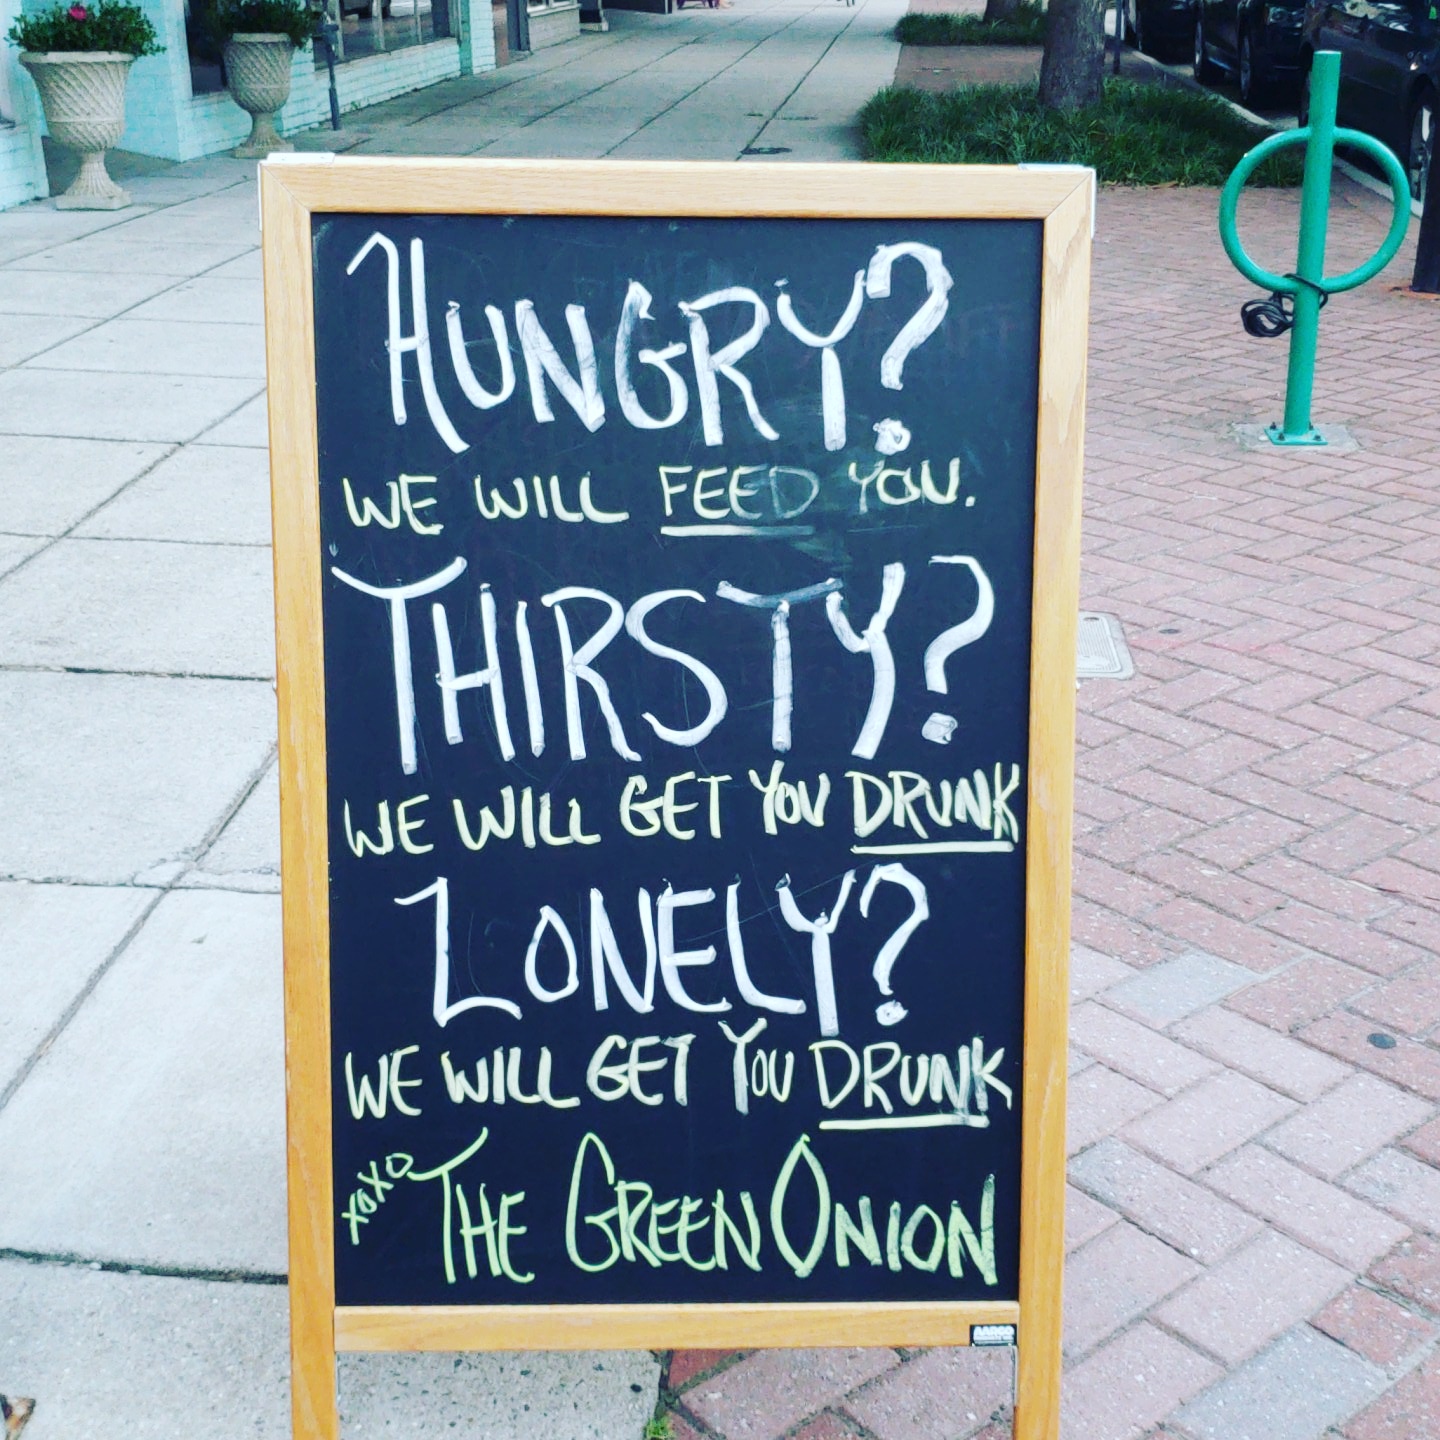 HUNGRY?
WE WILL FEED YOU.
THIRSTY?
WE WILL GET YOU DRUNK
LONELY?
WE WILL GET YOU DRUNK
XOXO THE GREEN ONION